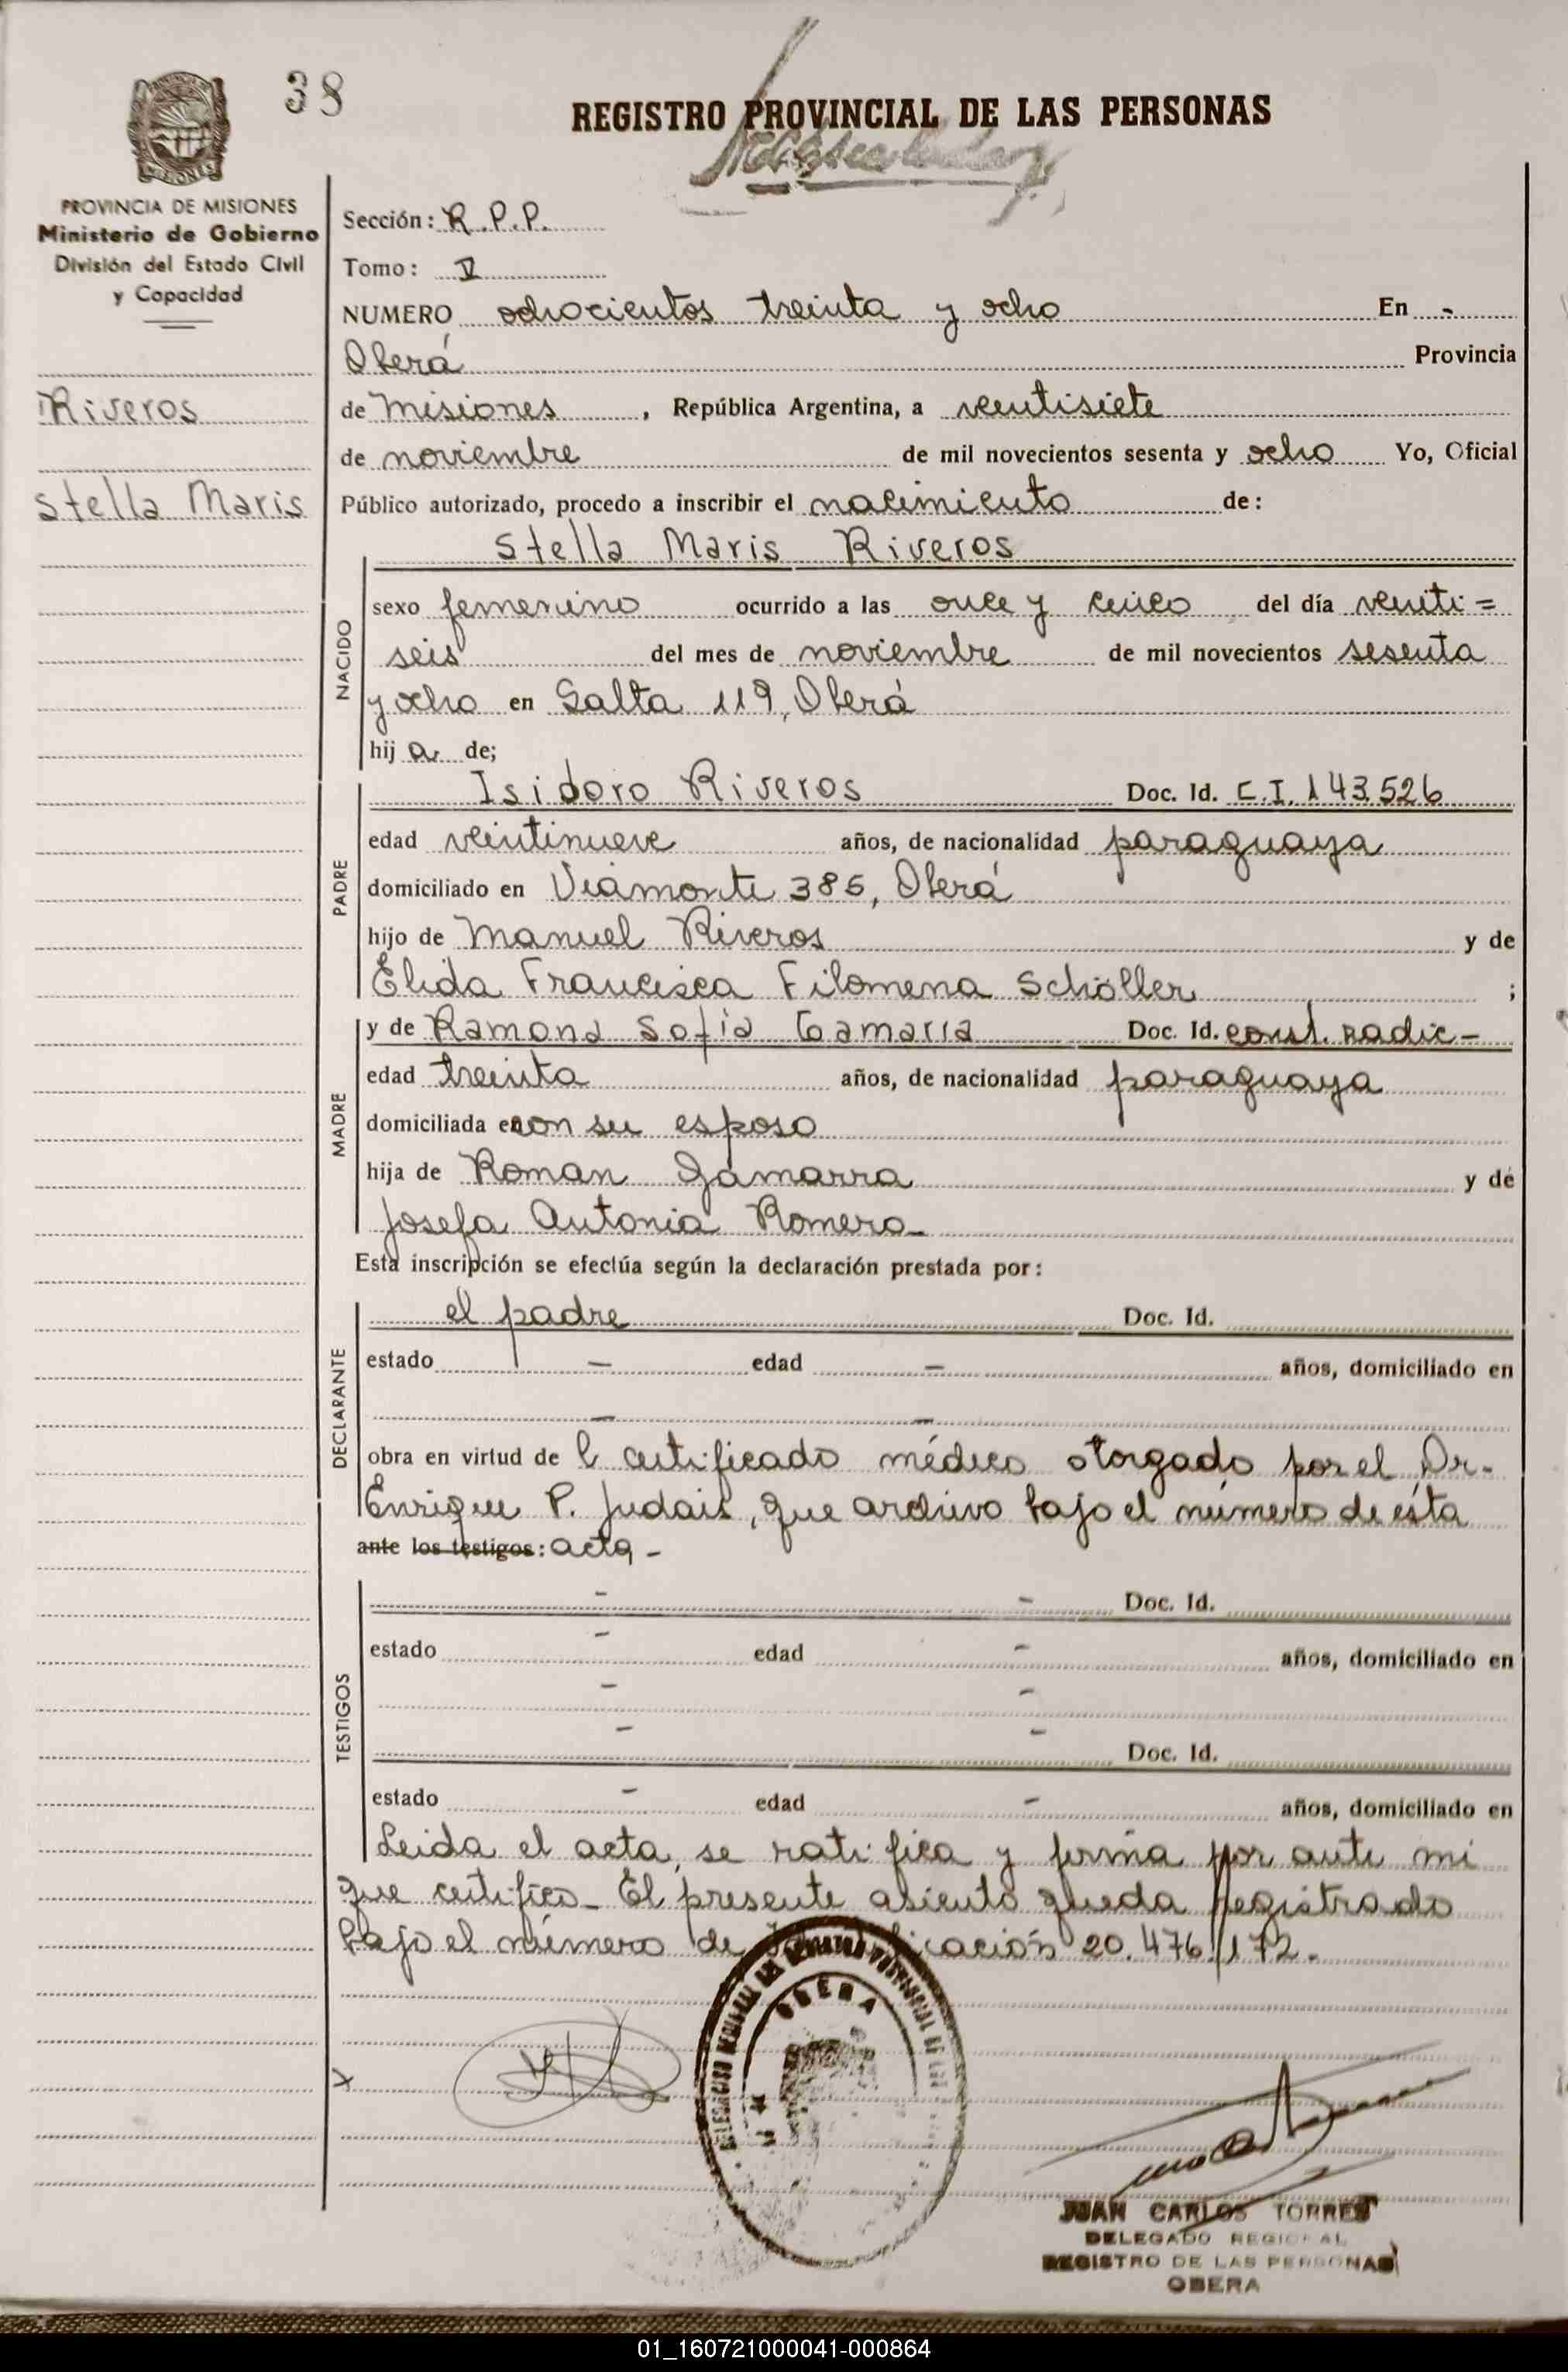 38
REGISTRO PROVINCIAL DE LAS PERSONAS
MISIONES
PROVINCIA DE MISIONES
Ministerio de Gobierno
División del Estado Civil
y Capacidad
Riveros
Stella Maris
Sección: R.P.P.
Tomo: V
NUMERO ochocientos treinta y ocho En -
Oberá Provincia
de Misiones, República Argentina, a veintisiete
de noviembre de mil novecientos sesenta y ocho Yo, Oficial
Público autorizado, procedo a inscribir el nacimiento de:
Stella Maris Riveros
NACIDO
sexo femenino ocurrido a las once y cinco del día veinti=
seis del mes de noviembre de mil novecientos sesenta
y ocho en Salta 119, Oberá
hij a de;
PADRE
Isidoro Riveros Doc. Id. C.I. 143.526
edad veintinueve años, de nacionalidad paraguaya
domiciliado en Viamonte 385, Oberá
hijo de Manuel Riveros y de
Elida Francisca Filomena Schöller ;
MADRE
y de Ramona Sofía Gamarra Doc. Id. const. radic-
edad treinta años, de nacionalidad paraguaya
domiciliada con su esposo
hija de Roman Gamarra y de
Josefa Antonia Romero-
Esta inscripción se efectúa según la declaración prestada por:
DECLARANTE
el padre Doc. Id.
estado - edad - años, domiciliado en
- -
obra en virtud de l certificado médico otorgado por el Dr-
Enrique P. Judais, que archivo bajo el número de ésta
ante los testigos: acta-
TESTIGOS
- - Doc. Id.
estado - edad - años, domiciliado en
- -
- - Doc. Id.
estado - edad - años, domiciliado en
Leida el acta, se ratifica y firma por ante mi
que certifico- El presente asiento queda registrado
bajo el número de Identificación 20.476.172.-
OBERA
JUAN CARLOS TORRES
DELEGADO REGIONAL
REGISTRO DE LAS PERSONAS
OBERA
01_160721000041-000864